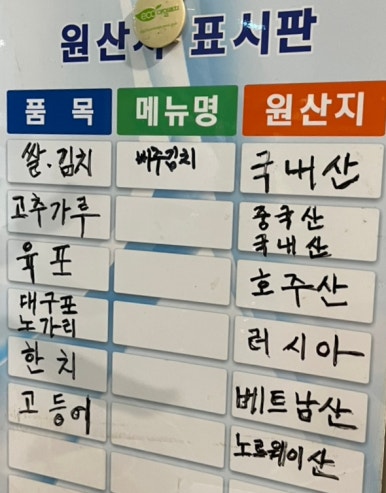 원산지 표시판
품 목 메뉴명 원산지
쌀.김치 배추김치 국내산
고추가루 중국산
국내산
육 포 호주산
대구포
노가리 러시아
한 치 베트남산
고 등어 노르웨이산